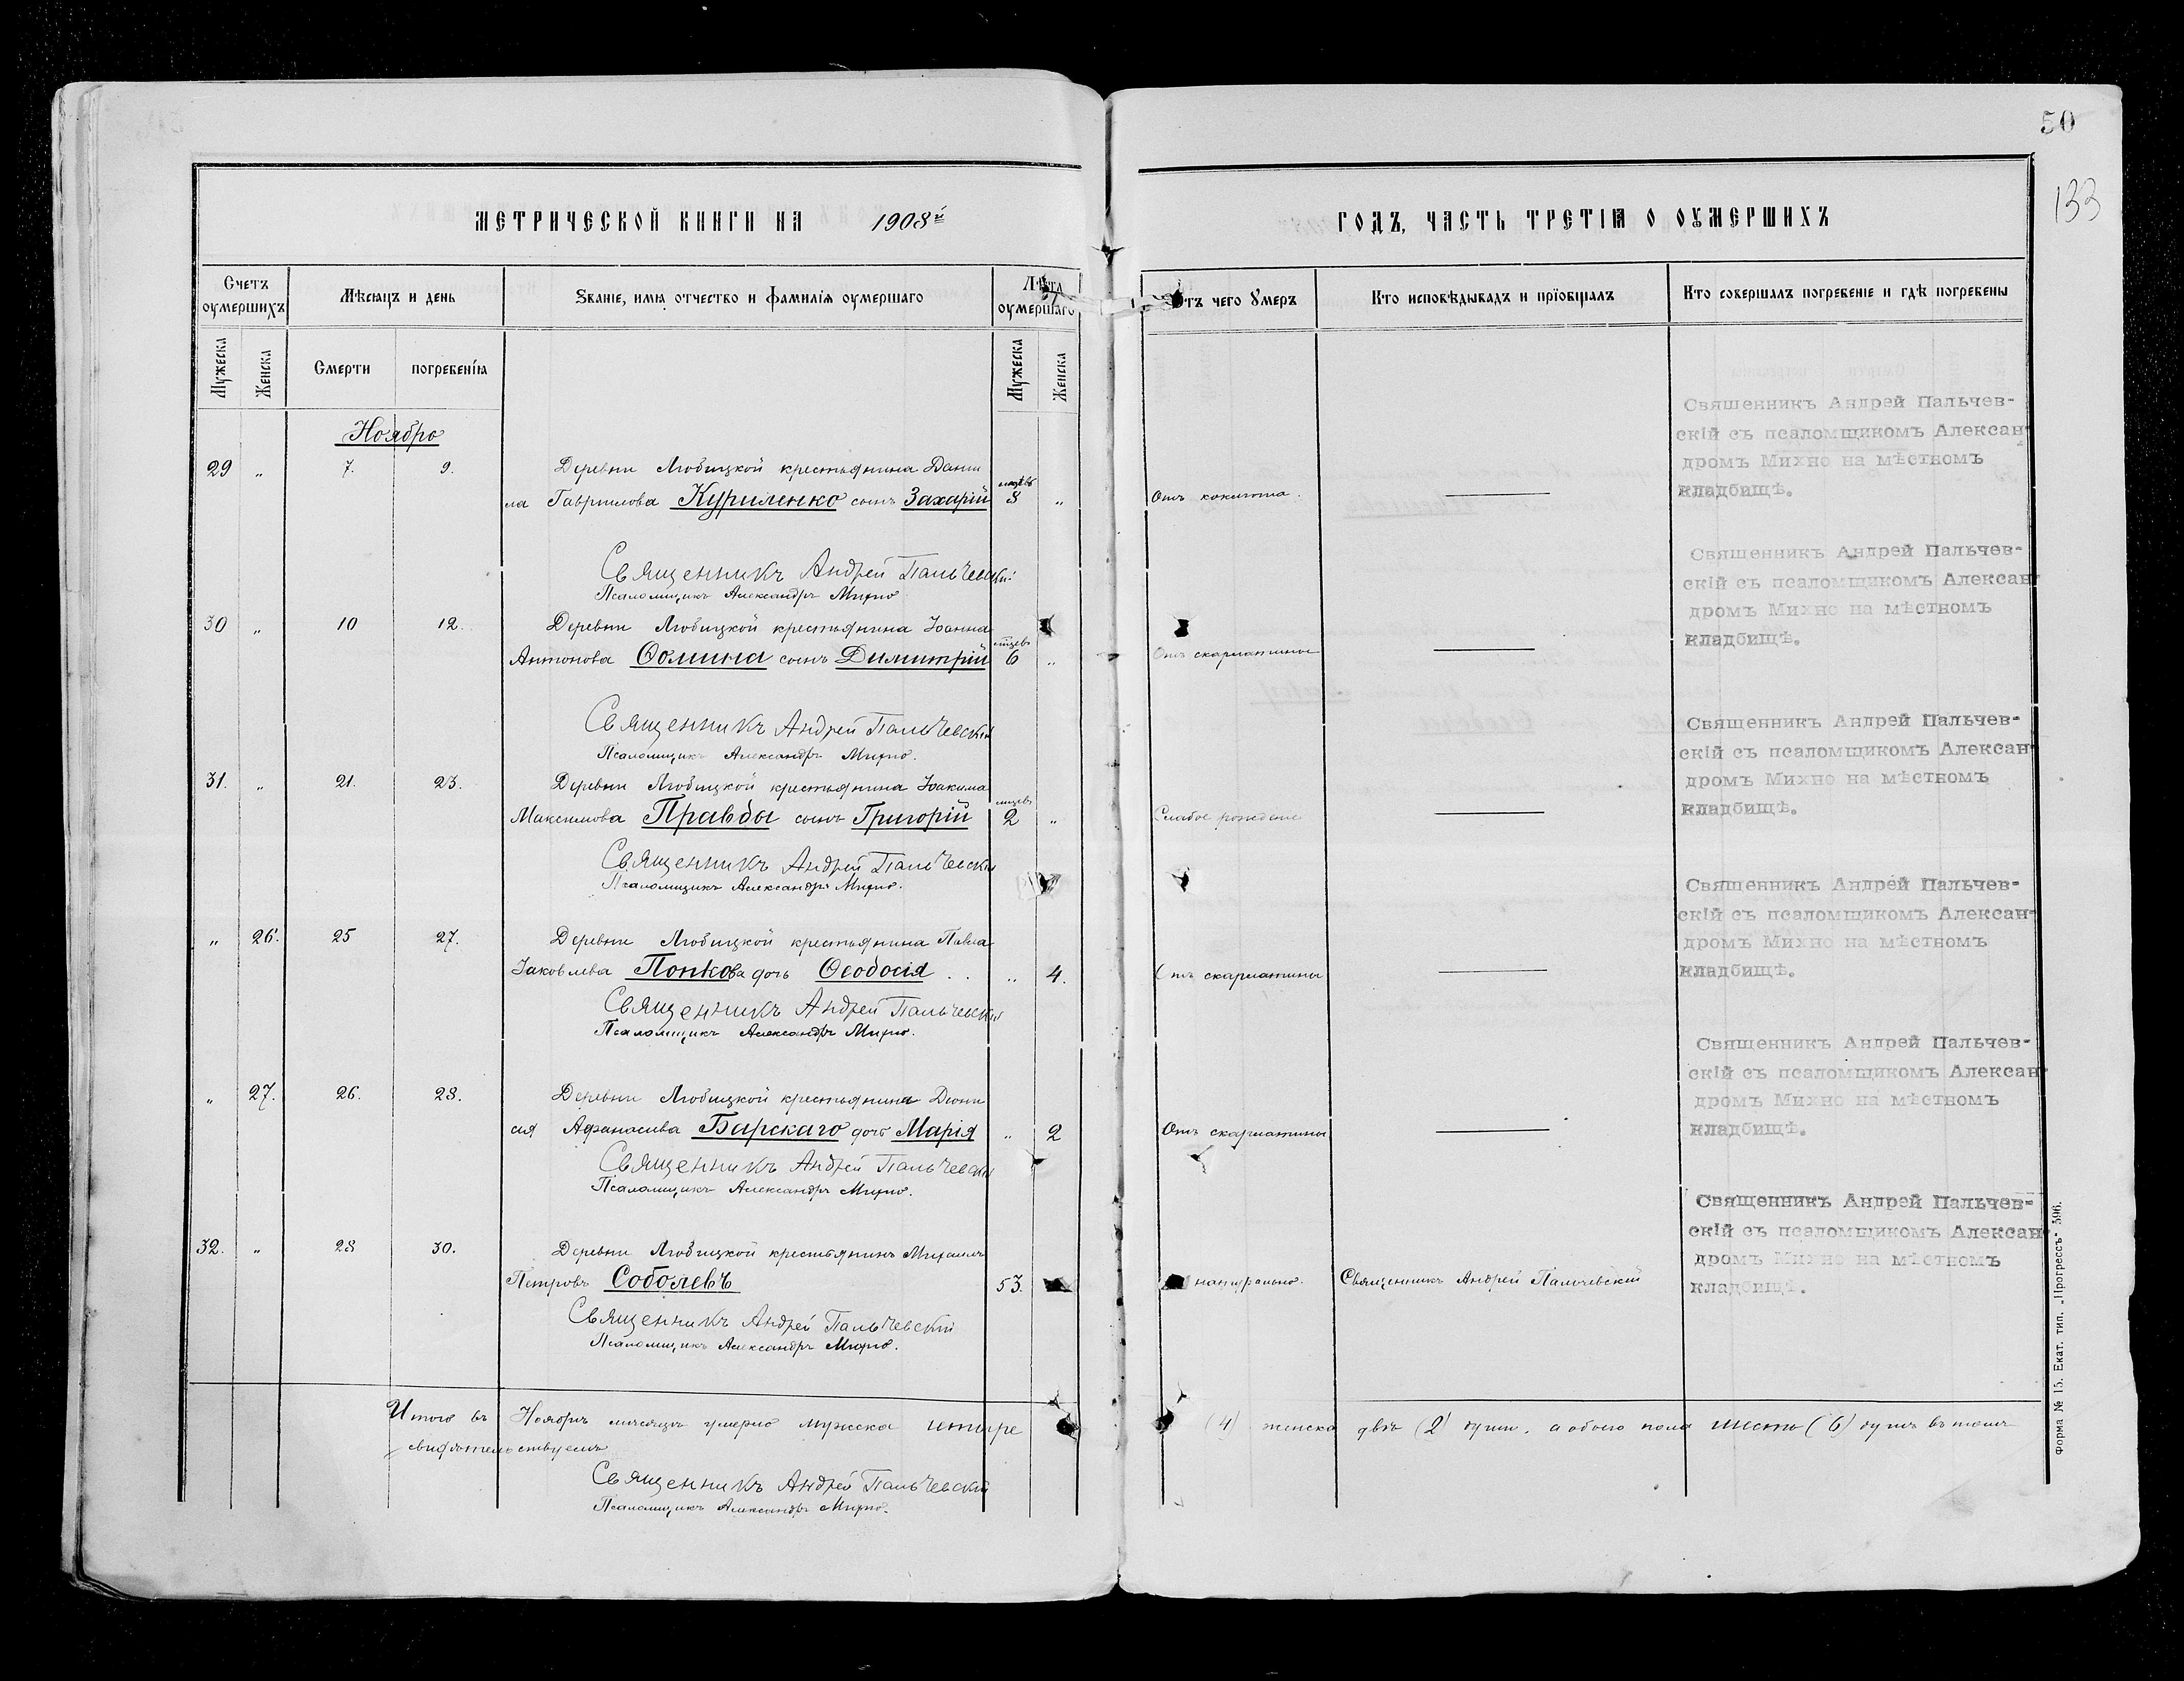 50
133
МЕТРИЧЕСКОЙ КНИГИ НА 1908й
ГОДЪ, ЧАСТЬ ТРЕТІЯ О ОУМЕРШИХЪ
Счетъ оумершихъ
Мѣсяцъ и день
Званіе, имя отчество и фамилія оумершаго
Лѣта оумершаго
Отъ чего умеръ
Кто исповѣдывалъ и пріобщалъ
Кто совершалъ погребеніе и гдѣ погребены
Мужеска
Женска
Смерти
погребенія
Мужеска
Женска
Ноябрь
29 „ 7. 9. Деревни Любицкой крестьянина Дани
ла Гаврилова Куриленко сынъ Захарій 8 „ Отъ коклюша.
Священникъ Андрей Пальчев-
скій съ псаломщикомъ Алексан-
дромъ Михно на мѣстномъ
кладбищѣ.
Священникъ Андрей Пальчевскій
Псаломщикъ Александръ Михно
30 „ 10 12. Деревни Любицкой крестьянина Іоанна
Антонова Ѳомина сынъ Димитрій мцевъ 6 „ Отъ скарлатины
Священникъ Андрей Пальчев-
скій съ псаломщикомъ Алексан-
дромъ Михно на мѣстномъ
кладбищѣ.
Священникъ Андрей Пальчевскій
Псаломщикъ Александръ Михно.
31. „ 21. 23. Деревни Любицкой крестьянина Іоакима
Максимова Правды сынъ Григорій мцевъ 2 „ Слабое рожденіе
Священникъ Андрей Пальчев-
скій съ псаломщикомъ Алексан-
дромъ Михно на мѣстномъ
кладбищѣ.
Священникъ Андрей Пальчевскій
Псаломщикъ Александръ Михно.
„ 26. 25 27. Деревни Любицкой крестьянина Павла
Іаковлева Попкова дочь Ѳеодосія „ 4. Отъ скарлатины
Священникъ Андрей Пальчев-
скій съ псаломщикомъ Алексан-
дромъ Михно на мѣстномъ
кладбищѣ.
Священникъ Андрей Пальчевскій
Псаломщикъ Александръ Михно.
„ 27. 26. 28. Деревни Любицкой крестьянина Діони
сія Афанасіева Барскаго дочь Марія „ 2 Отъ скарлатины
Священникъ Андрей Пальчев-
скій съ псаломщикомъ Алексан-
дромъ Михно на мѣстномъ
кладбищѣ.
Священникъ Андрей Пальчевскій
Псаломщикъ Александръ Михно.
32. „ 28 30. Деревни Любицкой крестьянинъ Михаилъ
Петровъ Соболевъ 53. натурально. Священникъ Андрей Пальчевскій
Священникъ Андрей Пальчев-
скій съ псаломщикомъ Алексан-
дромъ Михно на мѣстномъ
кладбищѣ.
Священникъ Андрей Пальчевскій
Псаломщикъ Александръ Михно.
Итого въ Ноябрѣ мѣсяцѣ умерло мужска четыре (4) женска двѣ (2) души, а обоего пола шесть (6) душъ въ томъ
свидѣтельствуемъ
Священникъ Андрей Пальчевскій
Псаломщикъ Александръ Михно.
Форма № 15. Екат. тип. „Прогрессъ“ 396.